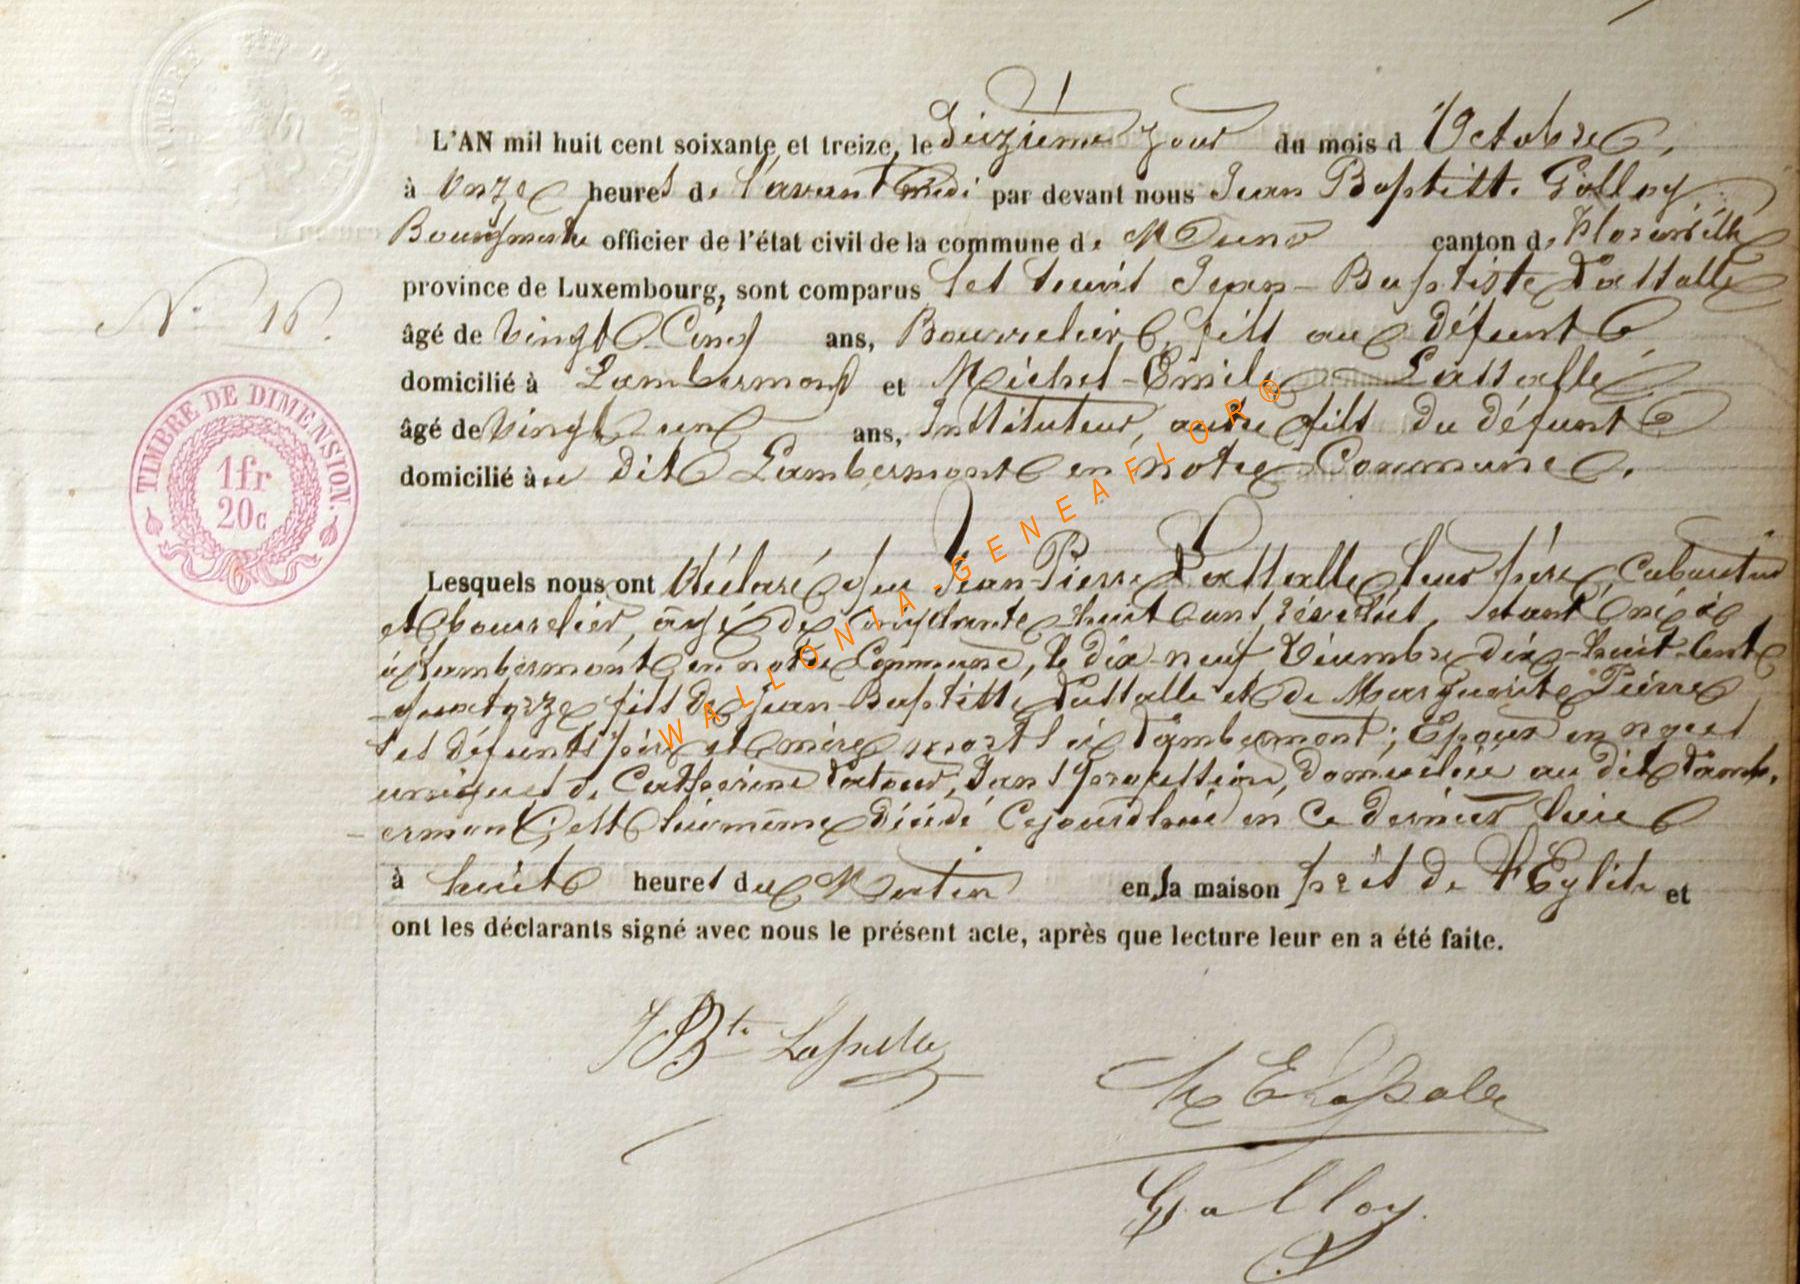 TIMBRE DE DIMENSION.
1fr
20c
N° 16.
L'AN mil huit cent soixante et treize, le Jour du mois d'Octobre,
à Onze heures de l'avant midi par devant nous Jean Baptiste Golloy
Bourgmestre officier de l'état civil de la commune de Muno canton de Florenville
province de Luxembourg, sont comparus Les Jean-Baptiste Lassalle
âgé de Vingt Cinq ans, Bourrelier, fils au défunt
domicilié à Lambermont et Michel-Emile Lassalle
âgé de Vingt un ans, Instituteur, autre fils du défunt
domicilié au dit Lambermont en notre Commune.
Lesquels nous ont déclaré que Jean-Pierre Lassalle leur père, Cabaretier
et bourrelier, âgé de cinquante huit ans, étant né
à Lambermont en notre Commune, le dix neuf Décembre dix-huit-cent
quatorze fils de Jean-Baptiste Lassalle et de Marguerite Pierre
ses défunts père et mère morts à Lambermont; Epoux en noces
uniques de Catherine Latour, sans profession, domiciliée au dit Lamb-
ermont, est lui même décédé Cejourdhui en ce dernier lieu
à huit heures du Matin en sa maison près de l'Eglise et
ont les déclarants signé avec nous le présent acte, après que lecture leur en a été faite.
JBte
M E
Golloy
WALLONIA-GENEAFLOR®